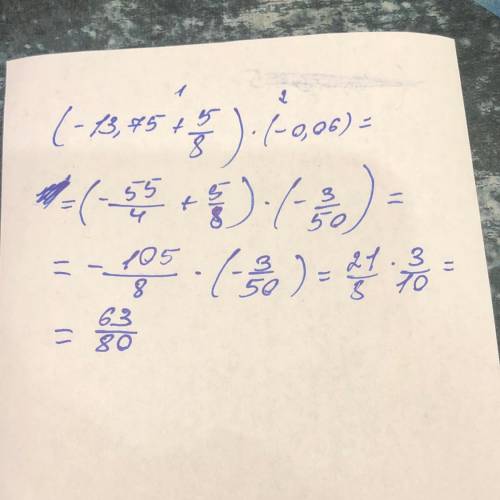 1 2
(-13,75 + 5/8) · (-0,06) =
= (-55/4 + 5/8) · (-3/50) =
= -105/8 · (-3/50) = 21/8 · 3/10 =
= 63/80